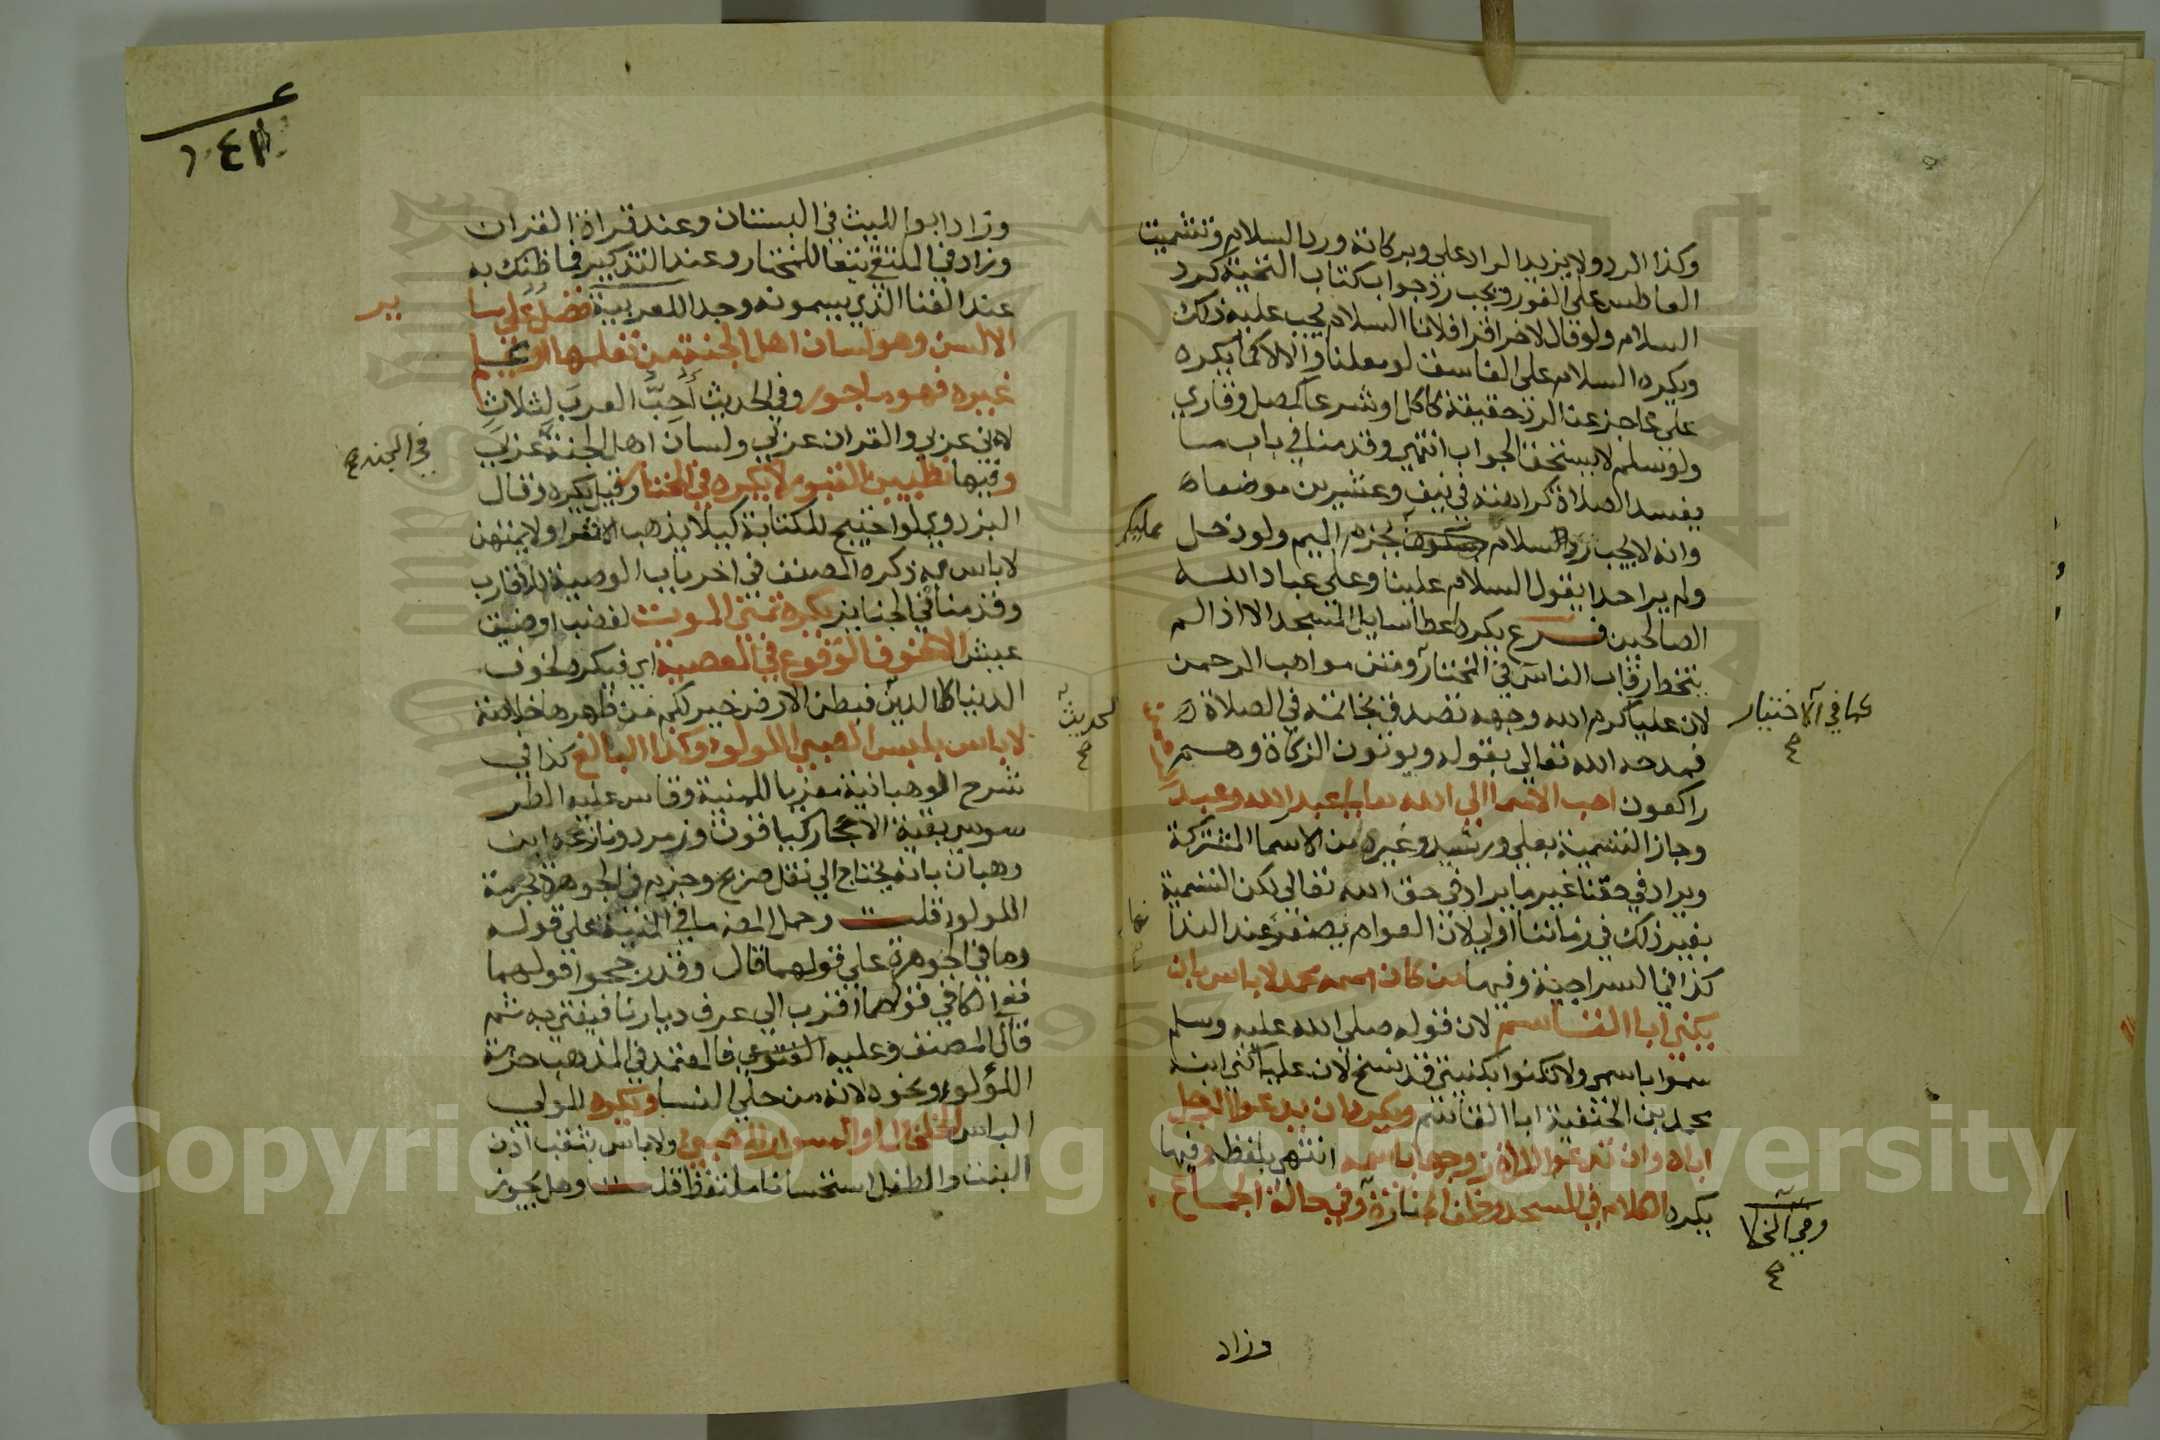 وكذا الرد ولا يزيد الراد على وبركاته ورد السلام وتشميت
العاطس على الفور ويجب رد جواب كتاب التحية كرد
السلام ولو قال لاخر اقرا فلانا السلام يجب عليه ذلك
ويكره السلام على الفاسق لو معلنا والا لا كما يكره
على عاجز عن الرد حقيقة كاكل او شرعا كمصل وقاري
ولو سلم لا يستحق الجواب انتهى وقدمنا في باب ما
يفسد الصلاة كراهته في نيف وعشرين موضعا
وانه لا يجب رد السلام بجزم الميم ولو دخل
عليكم
ولم ير احدا يقول السلام علينا وعلى عباد الله
الصالحين فرع يكره اعطا سايل المسجد الا اذا لم
يتخط رقاب الناس في المختار ومتن مواهب الرحمن
كما في الاختيار
صح
لان عليا كرم الله وجهه تصدق بخاتمه في الصلاة
فمدحه الله تعالى بقوله ويوتون الزكاة وهم
راكعون احب الاسما الى الله تعالى عبد الله وعبد
وجاز التسمية بعلي ورشيد وغيره من الاسما المشتركة
ويراد في حقنا غير ما يراد في حق الله تعالى لكن التسمية
بغير ذلك في زماننا اولى لان العوام يصغر عند الندا
كذا في السراجية وفيها من كان اسمه محمد لا باس بان
يكنى ابا القاسم لان قوله صلى الله عليه وسلم
سموا باسمي ولا تكنوا بكنيتي قد نسخ لان عليا كنى ابنه
محمد بن الحنفية ابا القاسم ويكره ان يدعو الرجل
اباه وان تدعو المراة زوجها باسمه انتهى بلفظه وفيها
يكره الكلام في المسجد وخلف الجنازة وفي حالة الجماع
وفي الخلا
صح
وزاد
وزاد ابو الليث في البستان وعند قراة القران
وزاد في الملتقى تبعا للمختار وعند التذكير فما ظنك به
عند الغنا الذي يسمونه وجدا للعربية فضل على سا
ير
الالسن وهو لسان اهل الجنة من تعلمها او علم
غيره فهو ماجور وفي الحديث احب العرب لثلاث
لاني عربي والقران عربي ولسان اهل الجنة عربي
في الجنة صح
وفيها تطيين القبور لا يكره في المختار وقيل يكره وقال
البزدوي لو احتيج للكتابة كيلا يذهب الاثر ولا يمتهن
لا باس به ذكره المصنف في اخر باب الوصية للاقارب
وقدمنا في الجنايز يكره تمني الموت لغضب او ضيق
عيش الا لخوف الوقوع في المعصية اي فيكره لخوف
الدنيا لا الدين فبطن الارض خير لكم من ظهرها خلاصة
لحديث
صح
لا باس بلبس الصبي اللولو وكذا البالغ كذا في
شرح الوهبانية معزيا للمنية وقاس عليه الطر
سوسي بقية الاحجار كياقوت وزمرد ونازعه ابن
وهبان بانه يحتاج الى نقل صريح وجزم في الجوهرة بحرمة
اللولو قلت وحمل المص ما في المنية على قوله
وما في الجوهرة على قولهما قال وقد رجحوا قولهما
ففي الكافي قولهما اقرب الى عرف ديارنا فيفتى به ثم
قال المصنف وعليه الفتوى فالمعتمد في المذهب حرمة
اللولو ونحوه لانه من حلي النسا ويكره للولي
الباس الخلخال او السوار لصبي ولا باس بثقب اذن
البنت والطفل استحسانا ملتقط قلت وهل يجوز
Copyright © King Saud University
1957